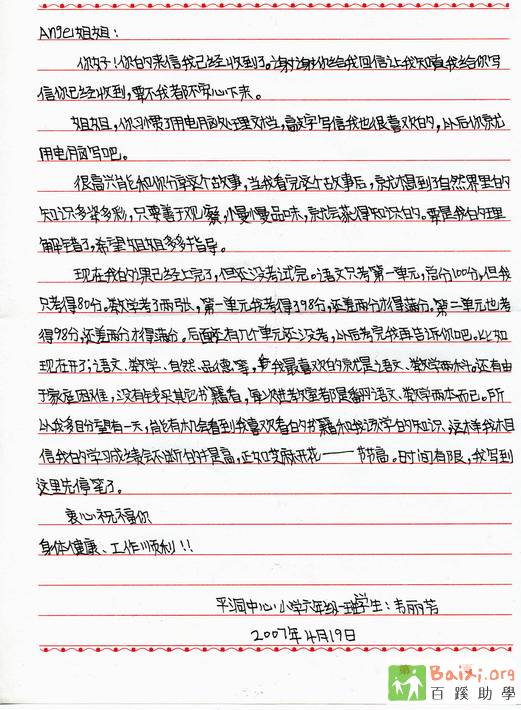 Angel姐姐：
你好！你的来信我已经收到了。谢谢你给我回信让我知道我给你写
信你已经收到，要不我都不安心下来。
姐姐，你习惯了用电脑处理文档，敲字写信我也很喜欢的，以后你就
用电脑写吧。
很高兴能和你分享这个故事，当我看完这个故事后，就想到了自然界里的
知识多姿多彩，只要善于观察，慢慢品味，就会获得知识的。要是我的理
解错了，希望姐姐多多指导。
现在我的课已经上完了，但还没考试完。语文只考第一单元，总分100分，但我
只考得80分。数学考了两张，第一单元我考得了98分，还差两分才得满分。第二单元也考
得98分，还差两分才得满分。后面还有几个单元还没考，以后考完我再告诉你吧。比如
现在开了：语文、数学、自然、品德等，我最喜欢的就是语文、数学两本科。还有由
于家庭困难，没有钱买其它书籍看，每次进教室都是翻语文、数学两本而已。所
以我多盼望有一天，能有机会看到我喜欢看的书籍和我该学的知识，这样我相
信我的学习成绩会不断的提高，正如芝麻开花——节节高。时间有限，我写到
这里先停笔了。
衷心祝福你
身体健康、工作顺利！！
平洞中心小学六年级一班学生：韦丽芳
2007年4月19日
Baixi.org
百蹊助學